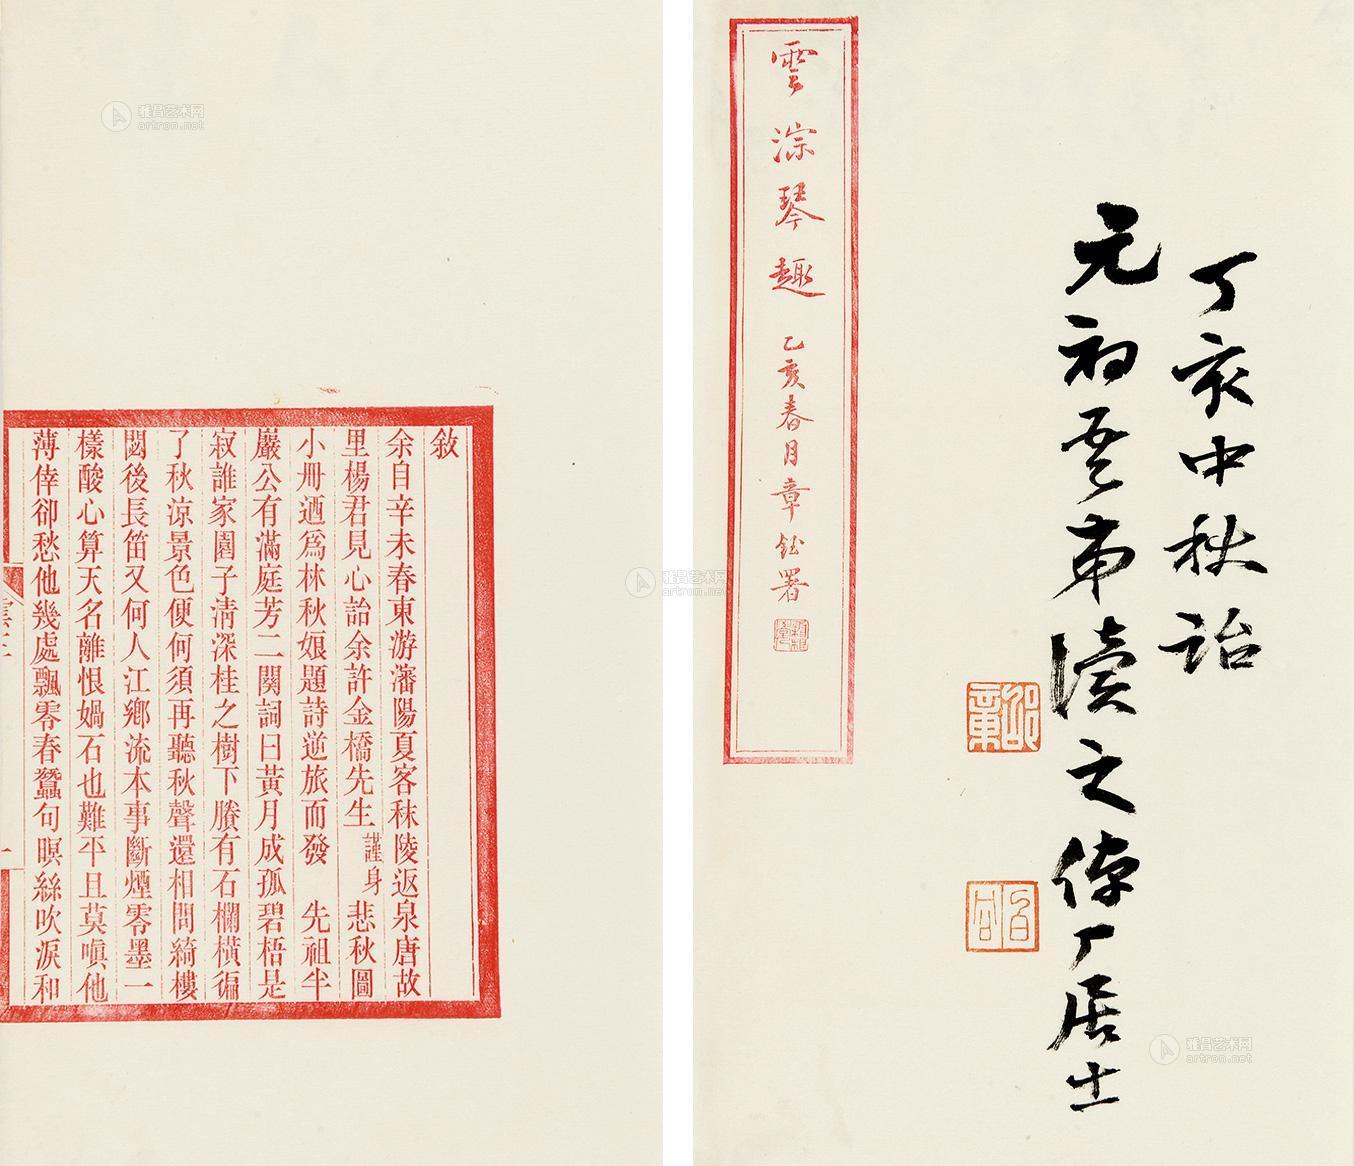 丁亥中秋詒
元初吾弟讀之倬丁居士
雲淙琴趣
乙亥春月章鈺署
敘
余自辛未春東游瀋陽夏客秣陵返泉唐故
里楊君見心詒余許金橋先生謹身悲秋圖
小冊迺爲林秋娘題詩逆旅而發　先祖半
巖公有滿庭芳二闋詞曰黃月成孤碧梧是
寂誰家園子淸深桂之樹下賸有石欄橫徧
了秋涼景色便何須再聽秋聲還相問綺樓
閟後長笛又何人江鄉流本事斷煙零墨一
樣酸心算天名離恨媧石也難平且莫嗔他
薄倖卻愁他幾處飄零春蠶句暝絲吹淚和
雅昌艺术网
artron.net
雅昌艺术网
artron.net
雅昌艺术网
artron.net